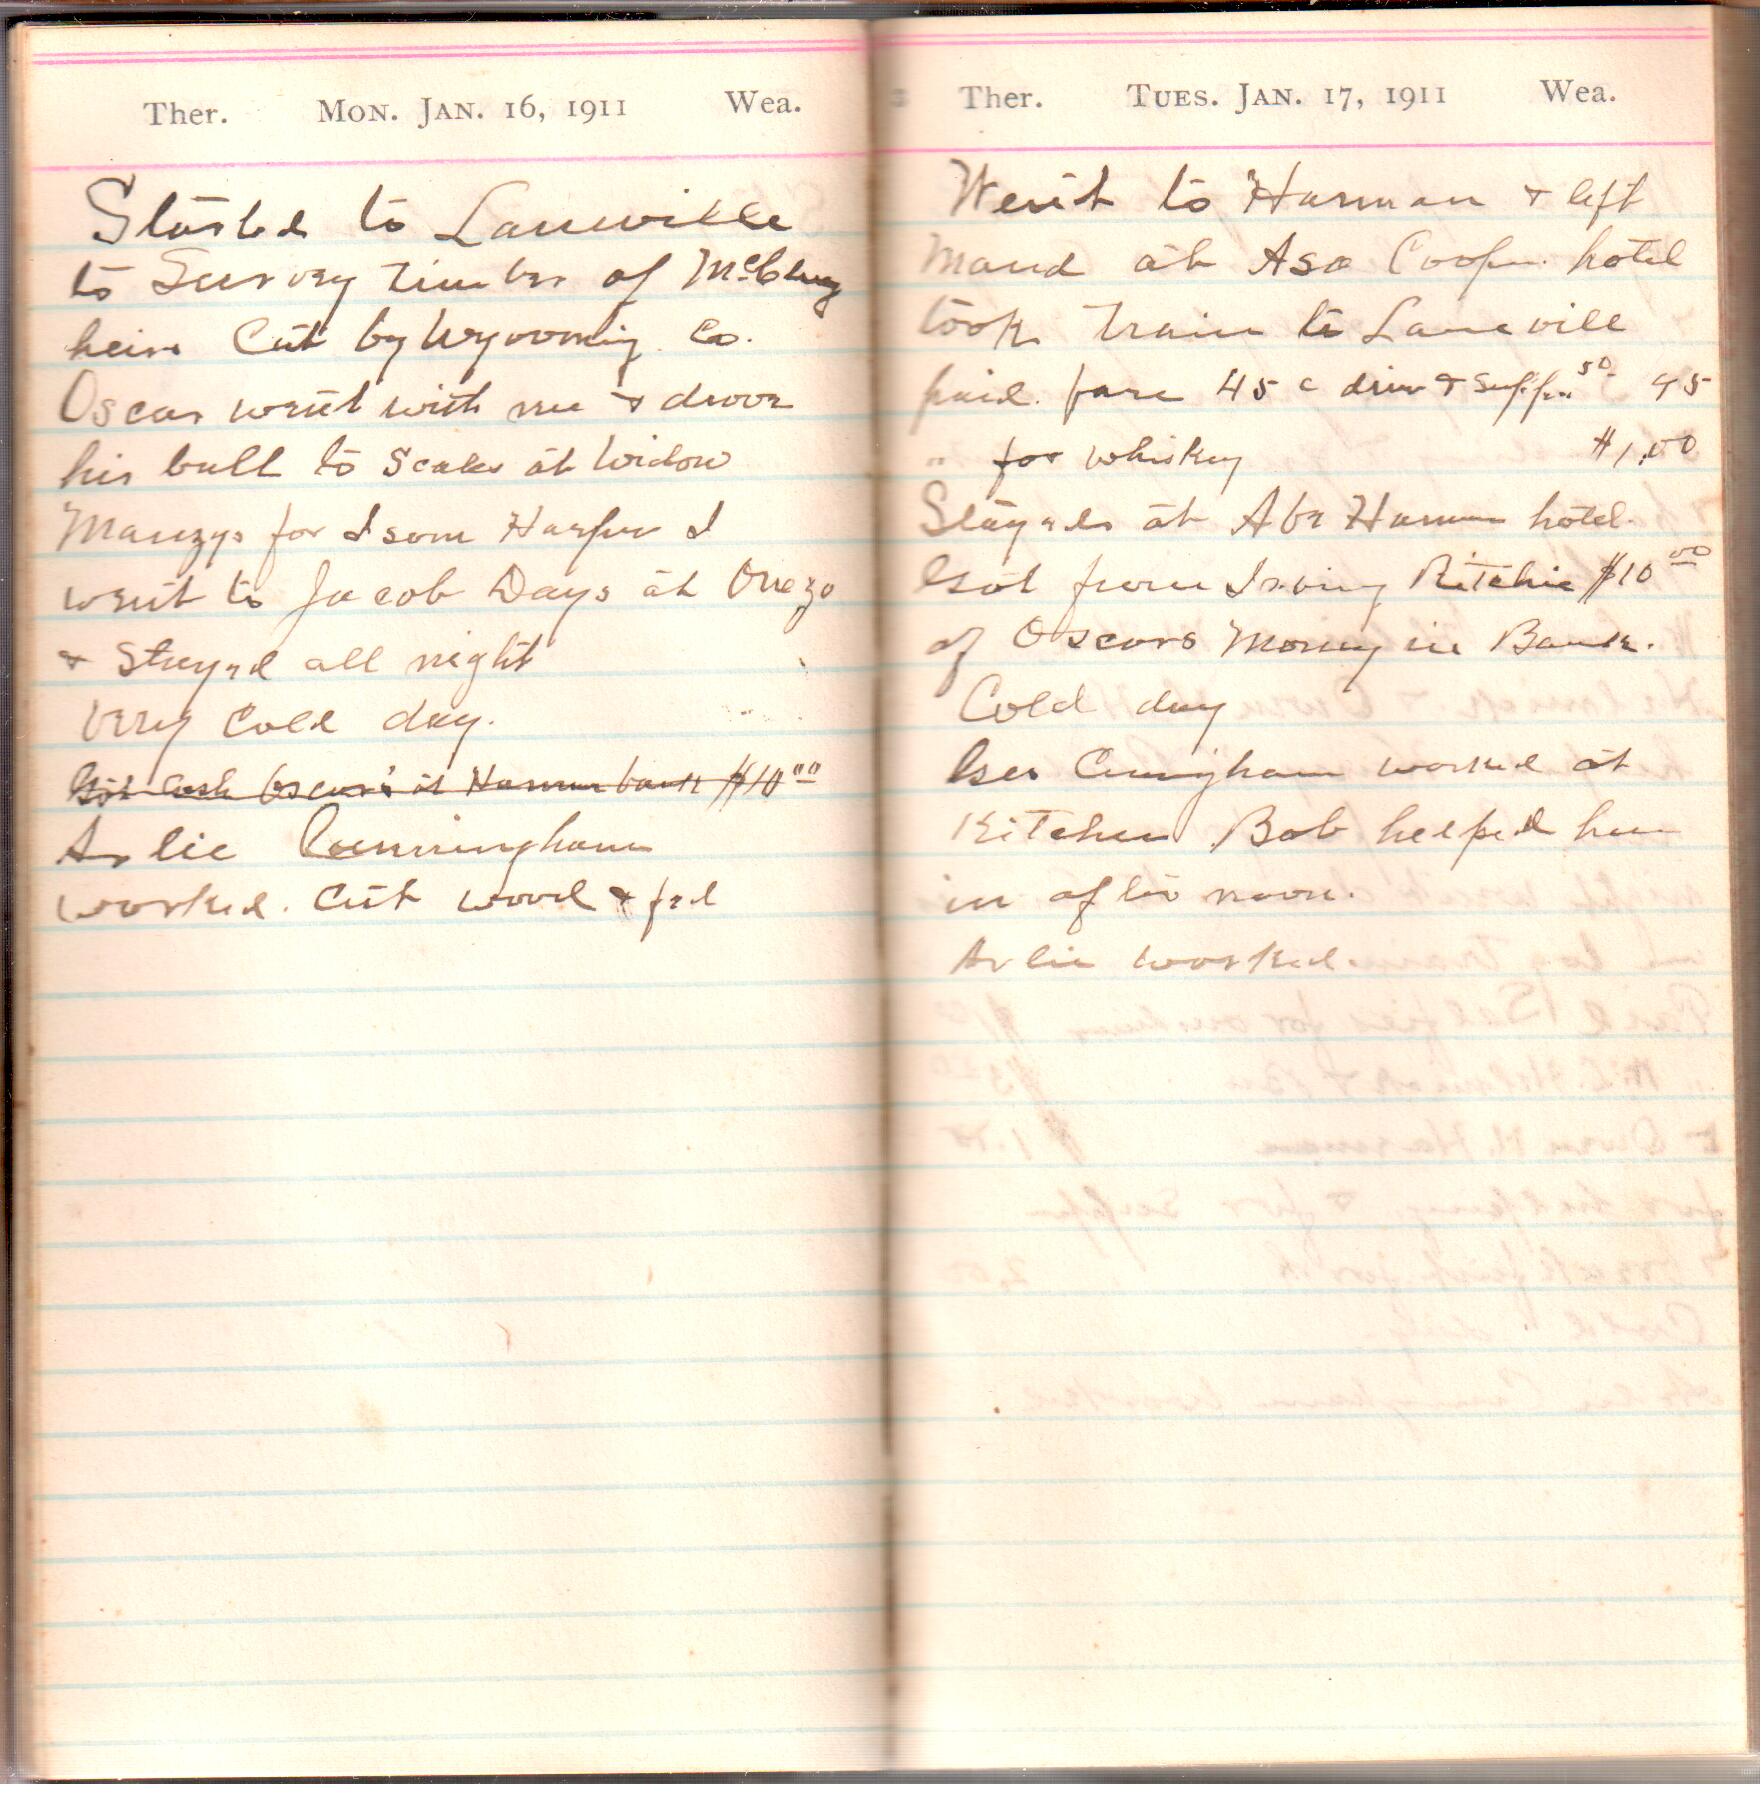 Ther. MON. JAN. 16, 1911 Wea.
Started to Laneville
to Survey timber of McClung
heirs Cut by Wyoming Co.
Oscar went with me & drove
his bull to Scales at Widow
for Isom Harper I
went to Jacob Days at Onego
& Stayed all night
Very Cold day.
Got Cash Oscar's at Harman bank $10.00
Arlie Cunningham
worked. Cut wood & fed
Ther. TUES. JAN. 17, 1911 Wea.
Went to Harman & left
Maud at Asa Cooper hotel
took train to Laneville
paid fare 45 c & Supper 50 95
" for whiskey $1.00
Stayed at Abe Harman hotel.
Got from Irving Ritchie $10.00
of Oscars Money in Bank.
Cold day
Cuningham worked at
Kitchen Bob helped him
in after noon.
Arlie worked.